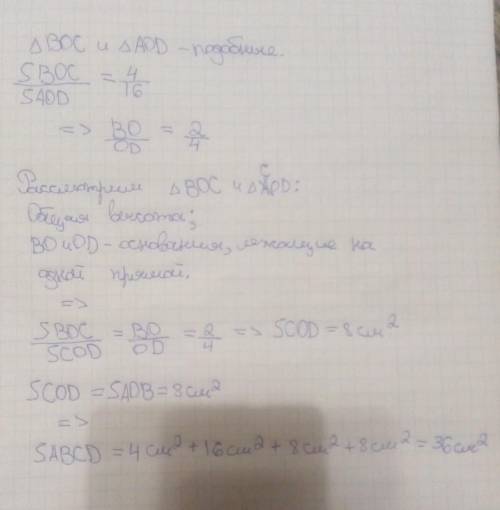 △BOC и △AOD - подобные.
SBOC/SAOD = 4/16
=> BO/OD = 2/4
Рассмотрим △BOC и △COD:
Общая высота;
BO и OD - основания, лежащие на
одной прямой.
=>
SBOC/SCOD = BO/OD = 2/4 => SCOD = 8 см²
SCOD = SAOB = 8 см²
=>
SABCD = 4 см² + 16 см² + 8 см² + 8 см² = 36 см²